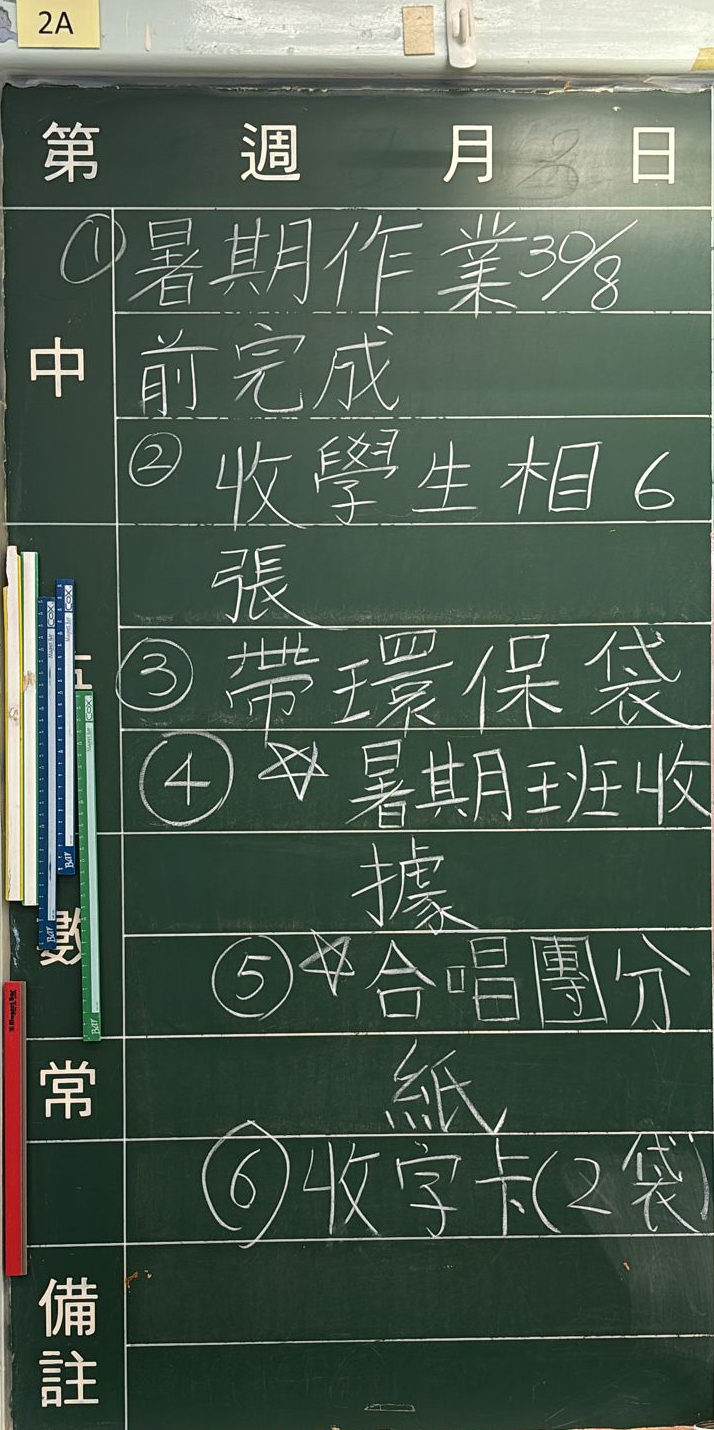 2A
第 週 月 日
① 暑期作業30/8
中
前完成
② 收學生相6
張
③ 帶環保袋
④ ☆ 暑期班收
據
數
⑤ ☆ 合唱團分
常
紙
⑥ 收字卡(2袋)
備
註